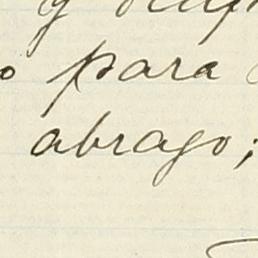 y
o para
abrago;